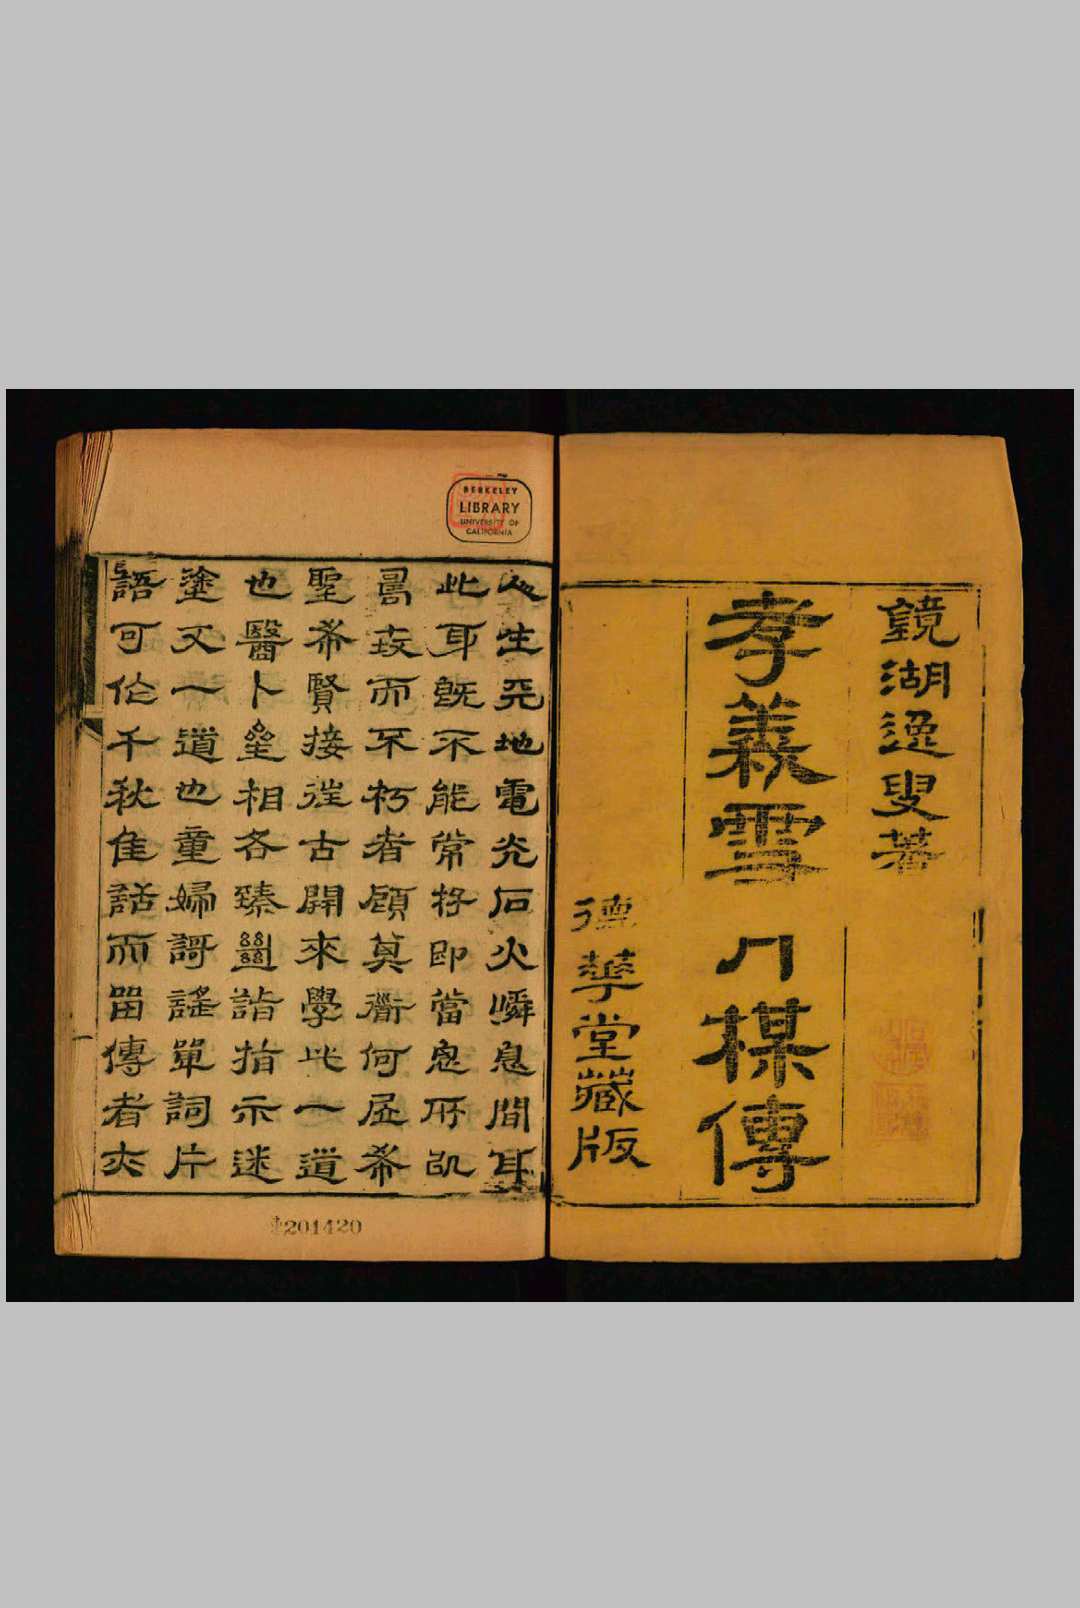 鏡湖逸叟著
孝義雪月楳傳
德華堂藏版
人生天地電光石火瞬息間耳
此耳既不能常存即當思所以
而不朽者顧莫衡何居希
聖希賢接往古開來學此一道
也醫卜星相各臻幽詣指示迷
塗又一道也童婦謌謠單詞片
語可作千秋佳話而留傳者亦
BERKELEY
LIBRARY
UNIVERSITY OF
CALIFORNIA
201420